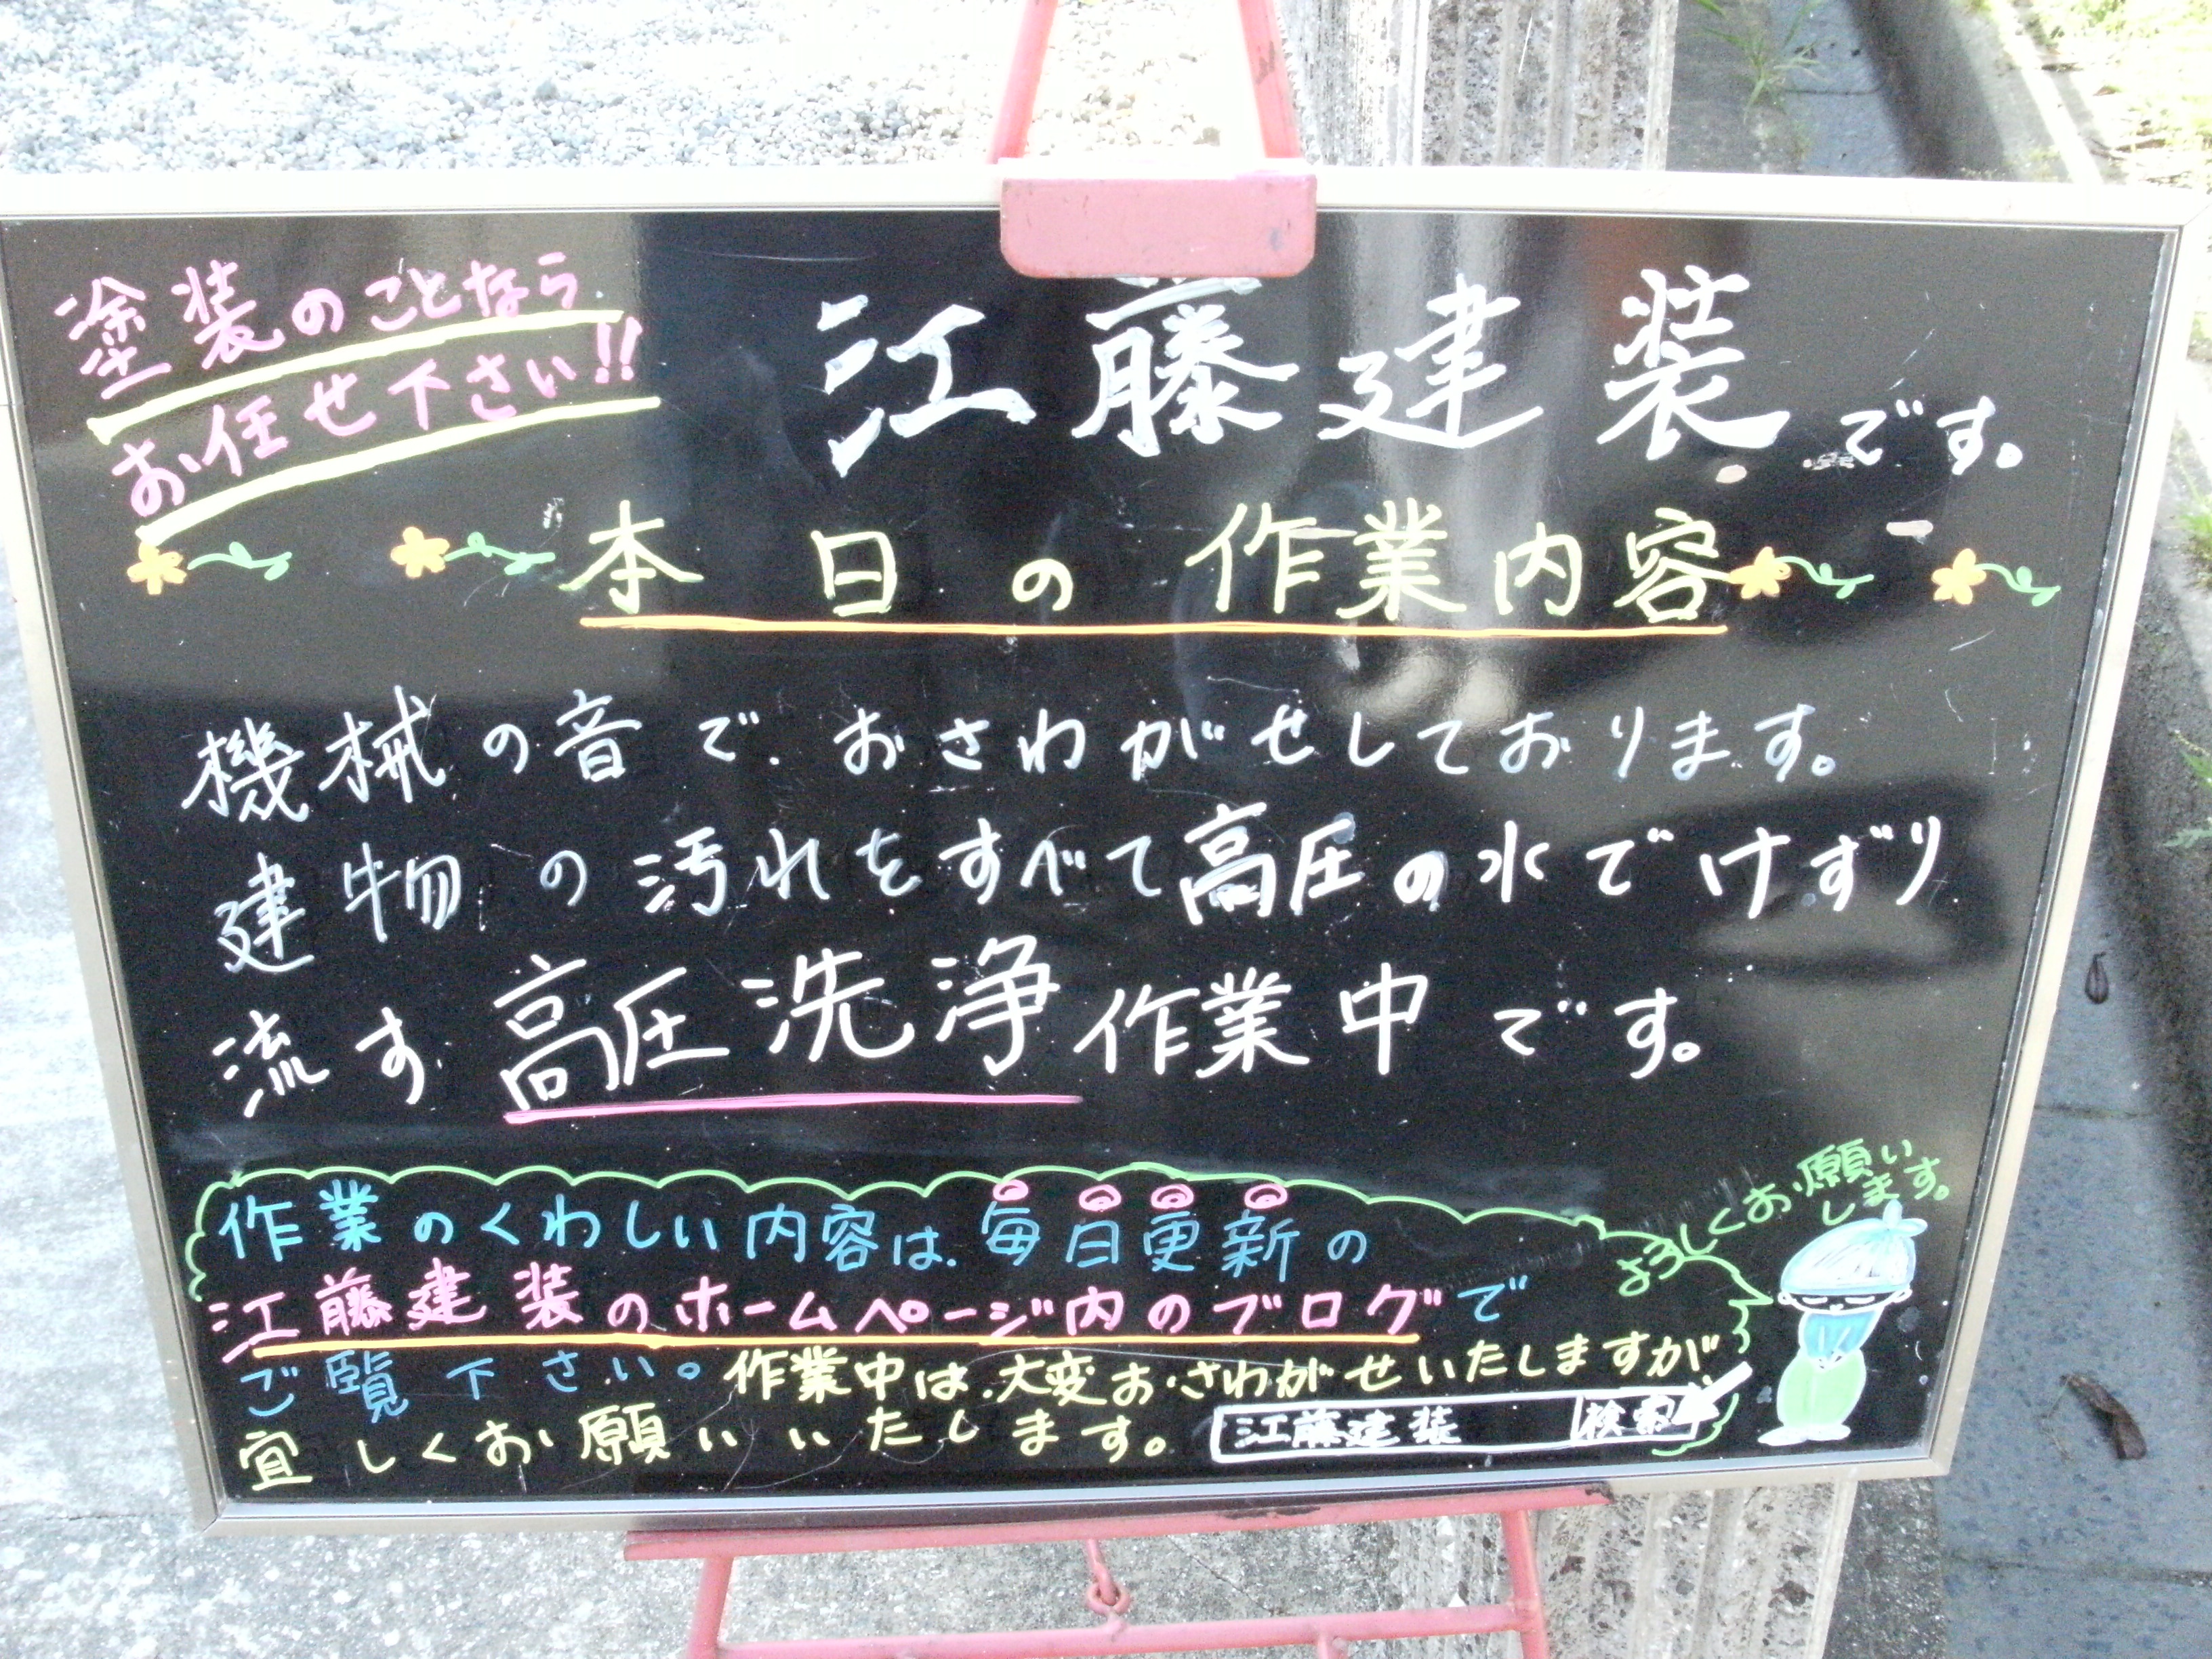 塗装のことなら
お任せ下さい!!
江藤建装です。
本日の作業内容
機械の音でおさわがせしております。
建物の汚れをすべて高圧の水でけずり
流す高圧洗浄作業中です。
作業のくわしい内容は毎日更新の
江藤建装のホームページ内のブログで
ご覧下さい。作業中は大変おさわがせいたしますが
宜しくお願いいたします。
江藤建装 検索
よろしくお願い
します。